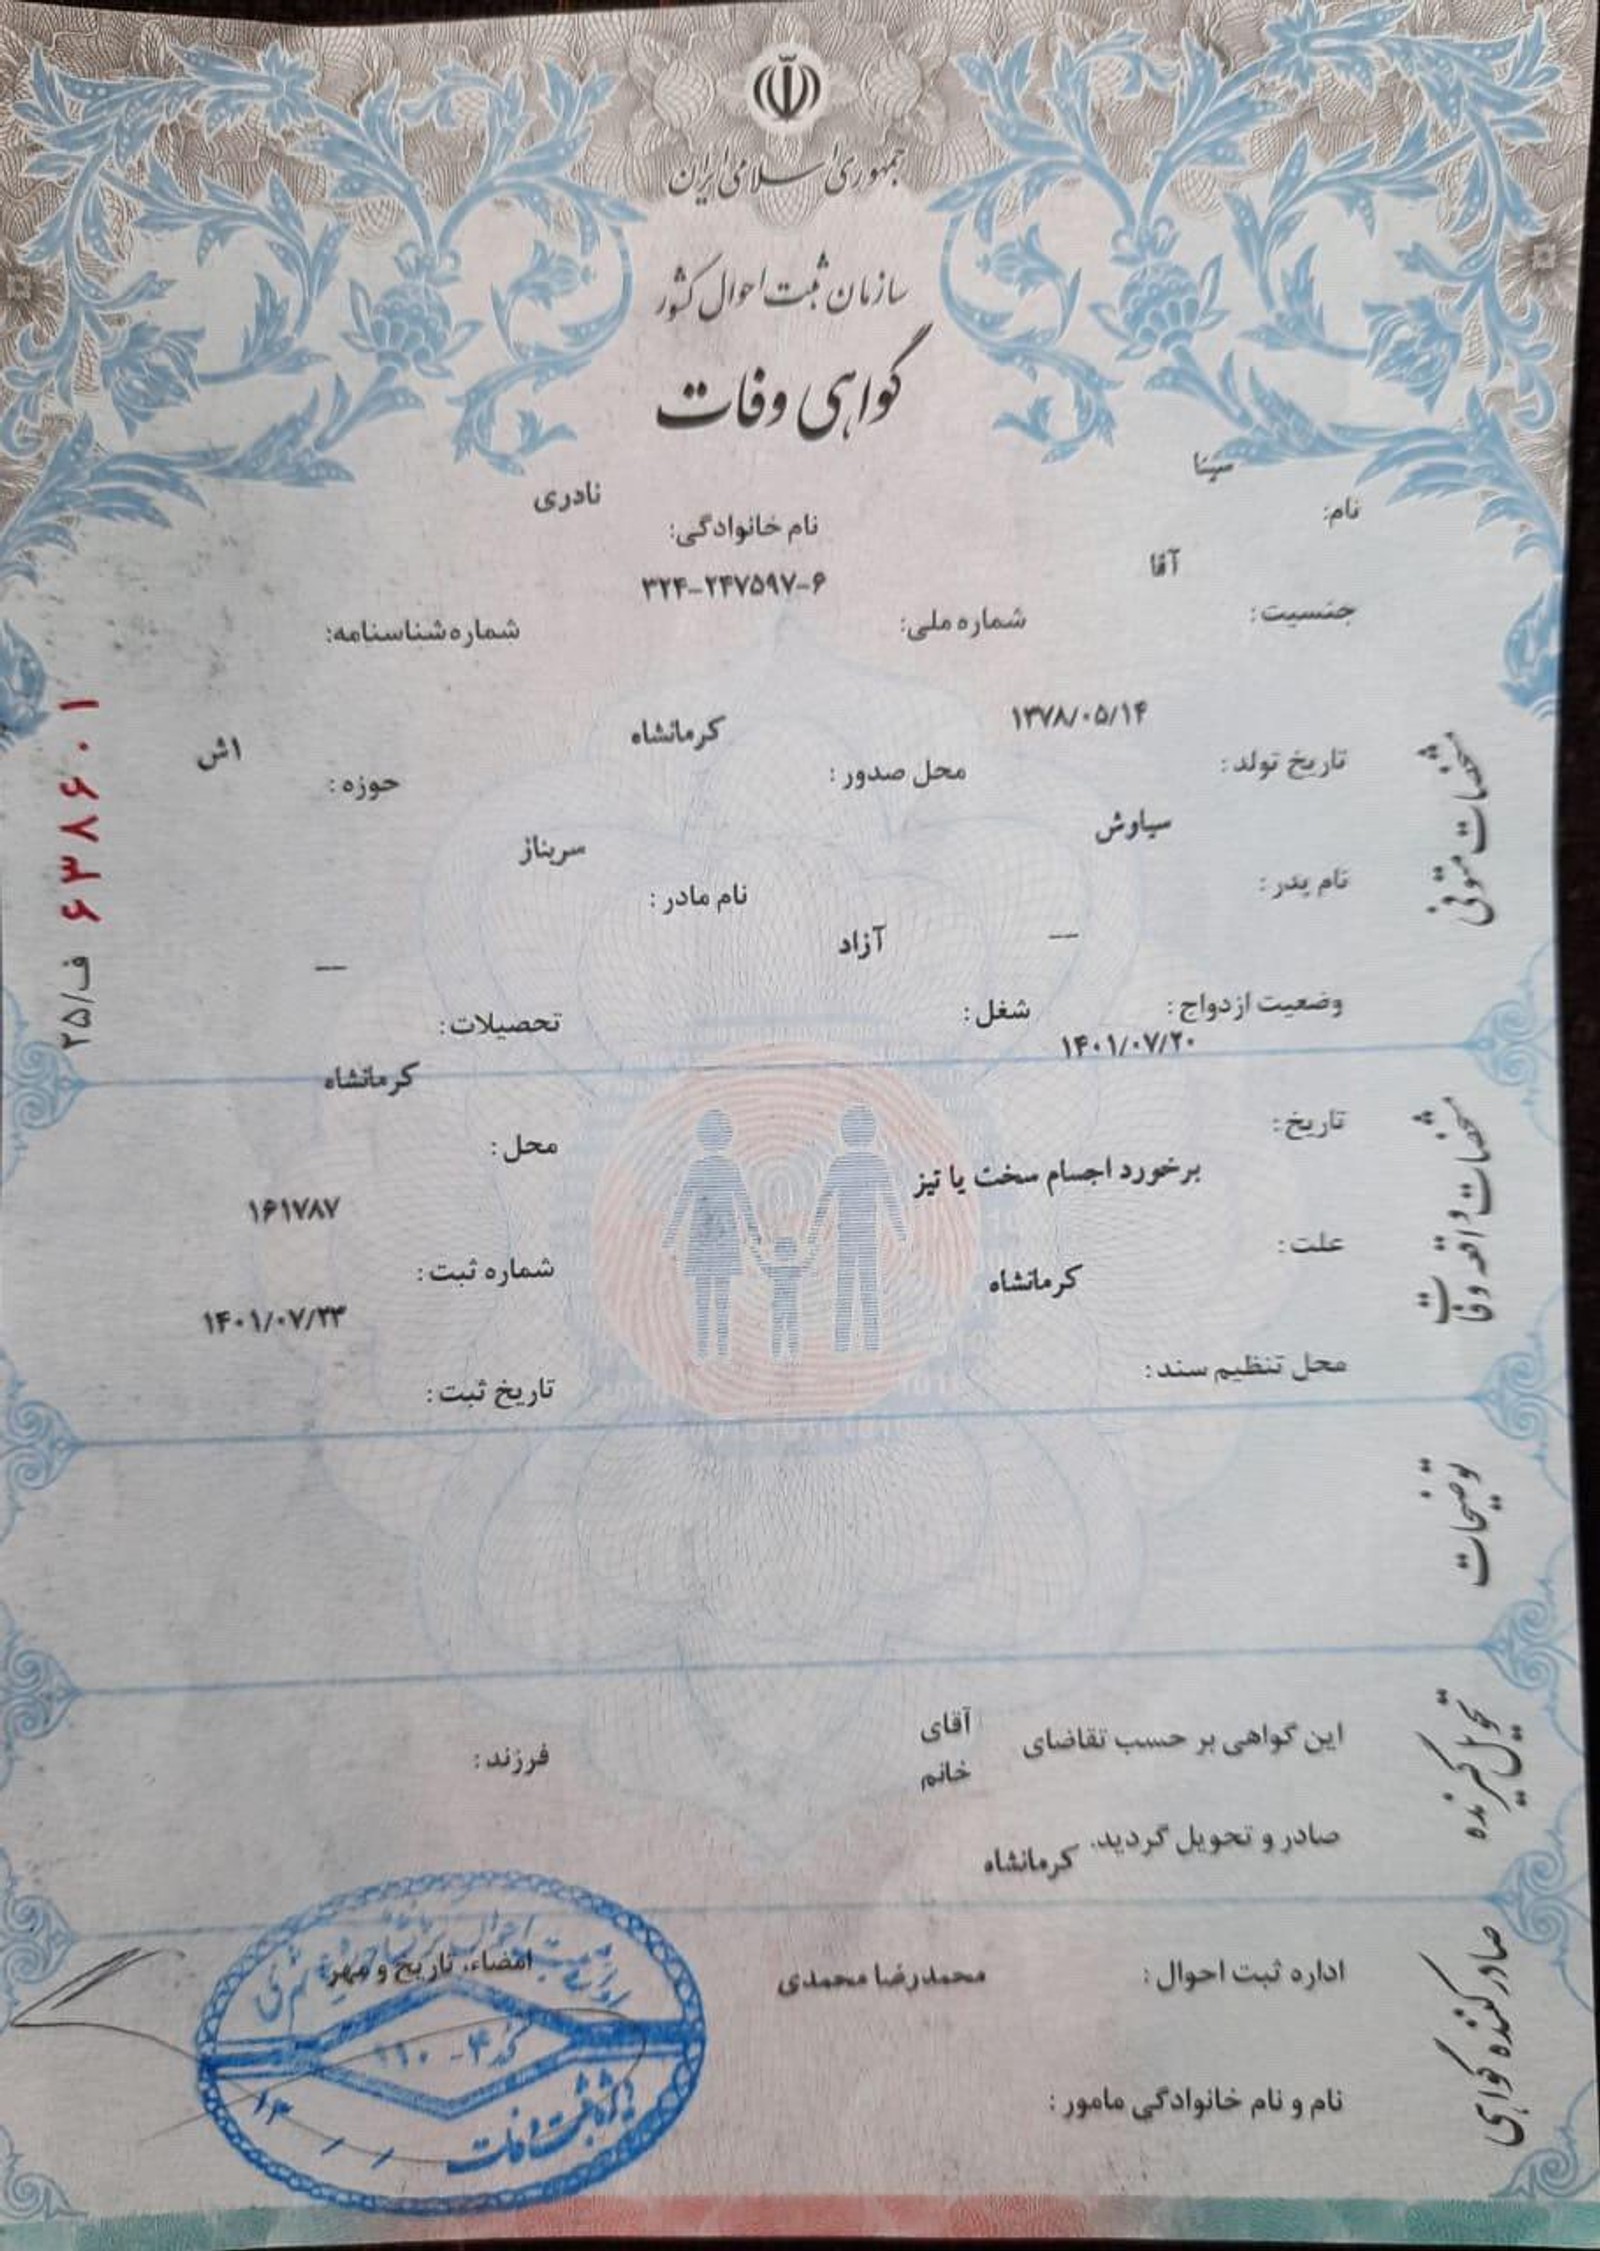 جمهوری اسلامی ایران
سازمان ثبت احوال کشور
گواهی وفات
نام: سینا نام خانوادگی: نادری
جنسیت: آقا شماره ملی: ۳۲۴-۲۴۷۵۹۷-۶ شماره شناسنامه:
مشخصات متوفی
تاریخ تولد: ۱۳۷۸/۰۵/۱۴ محل صدور: کرمانشاه حوزه: ۱ش
نام پدر: سیاوش نام مادر: سربناز
وضعیت ازدواج: — شغل: آزاد تحصیلات: —
۲۵/ف ۶۳۸۶۰۱
مشخصات واقعه وفات
تاریخ: ۱۴۰۱/۰۷/۲۰ محل: کرمانشاه
علت: برخورد اجسام سخت یا تیز شماره ثبت: ۱۶۱۷۸۷
محل تنظیم سند: کرمانشاه تاریخ ثبت: ۱۴۰۱/۰۷/۲۳
توضیحات
تحویل گیرنده
این گواهی بر حسب تقاضای آقای خانم فرزند:
صادر و تحویل گردید.
صادر کننده گواهی
اداره ثبت احوال: کرمانشاه امضاء، تاریخ و مهر:
نام و نام خانوادگی مامور: محمدرضا محمدی
کد ۴ - ۱۱۰
ویژه ثبت وفات
۱۳ / /